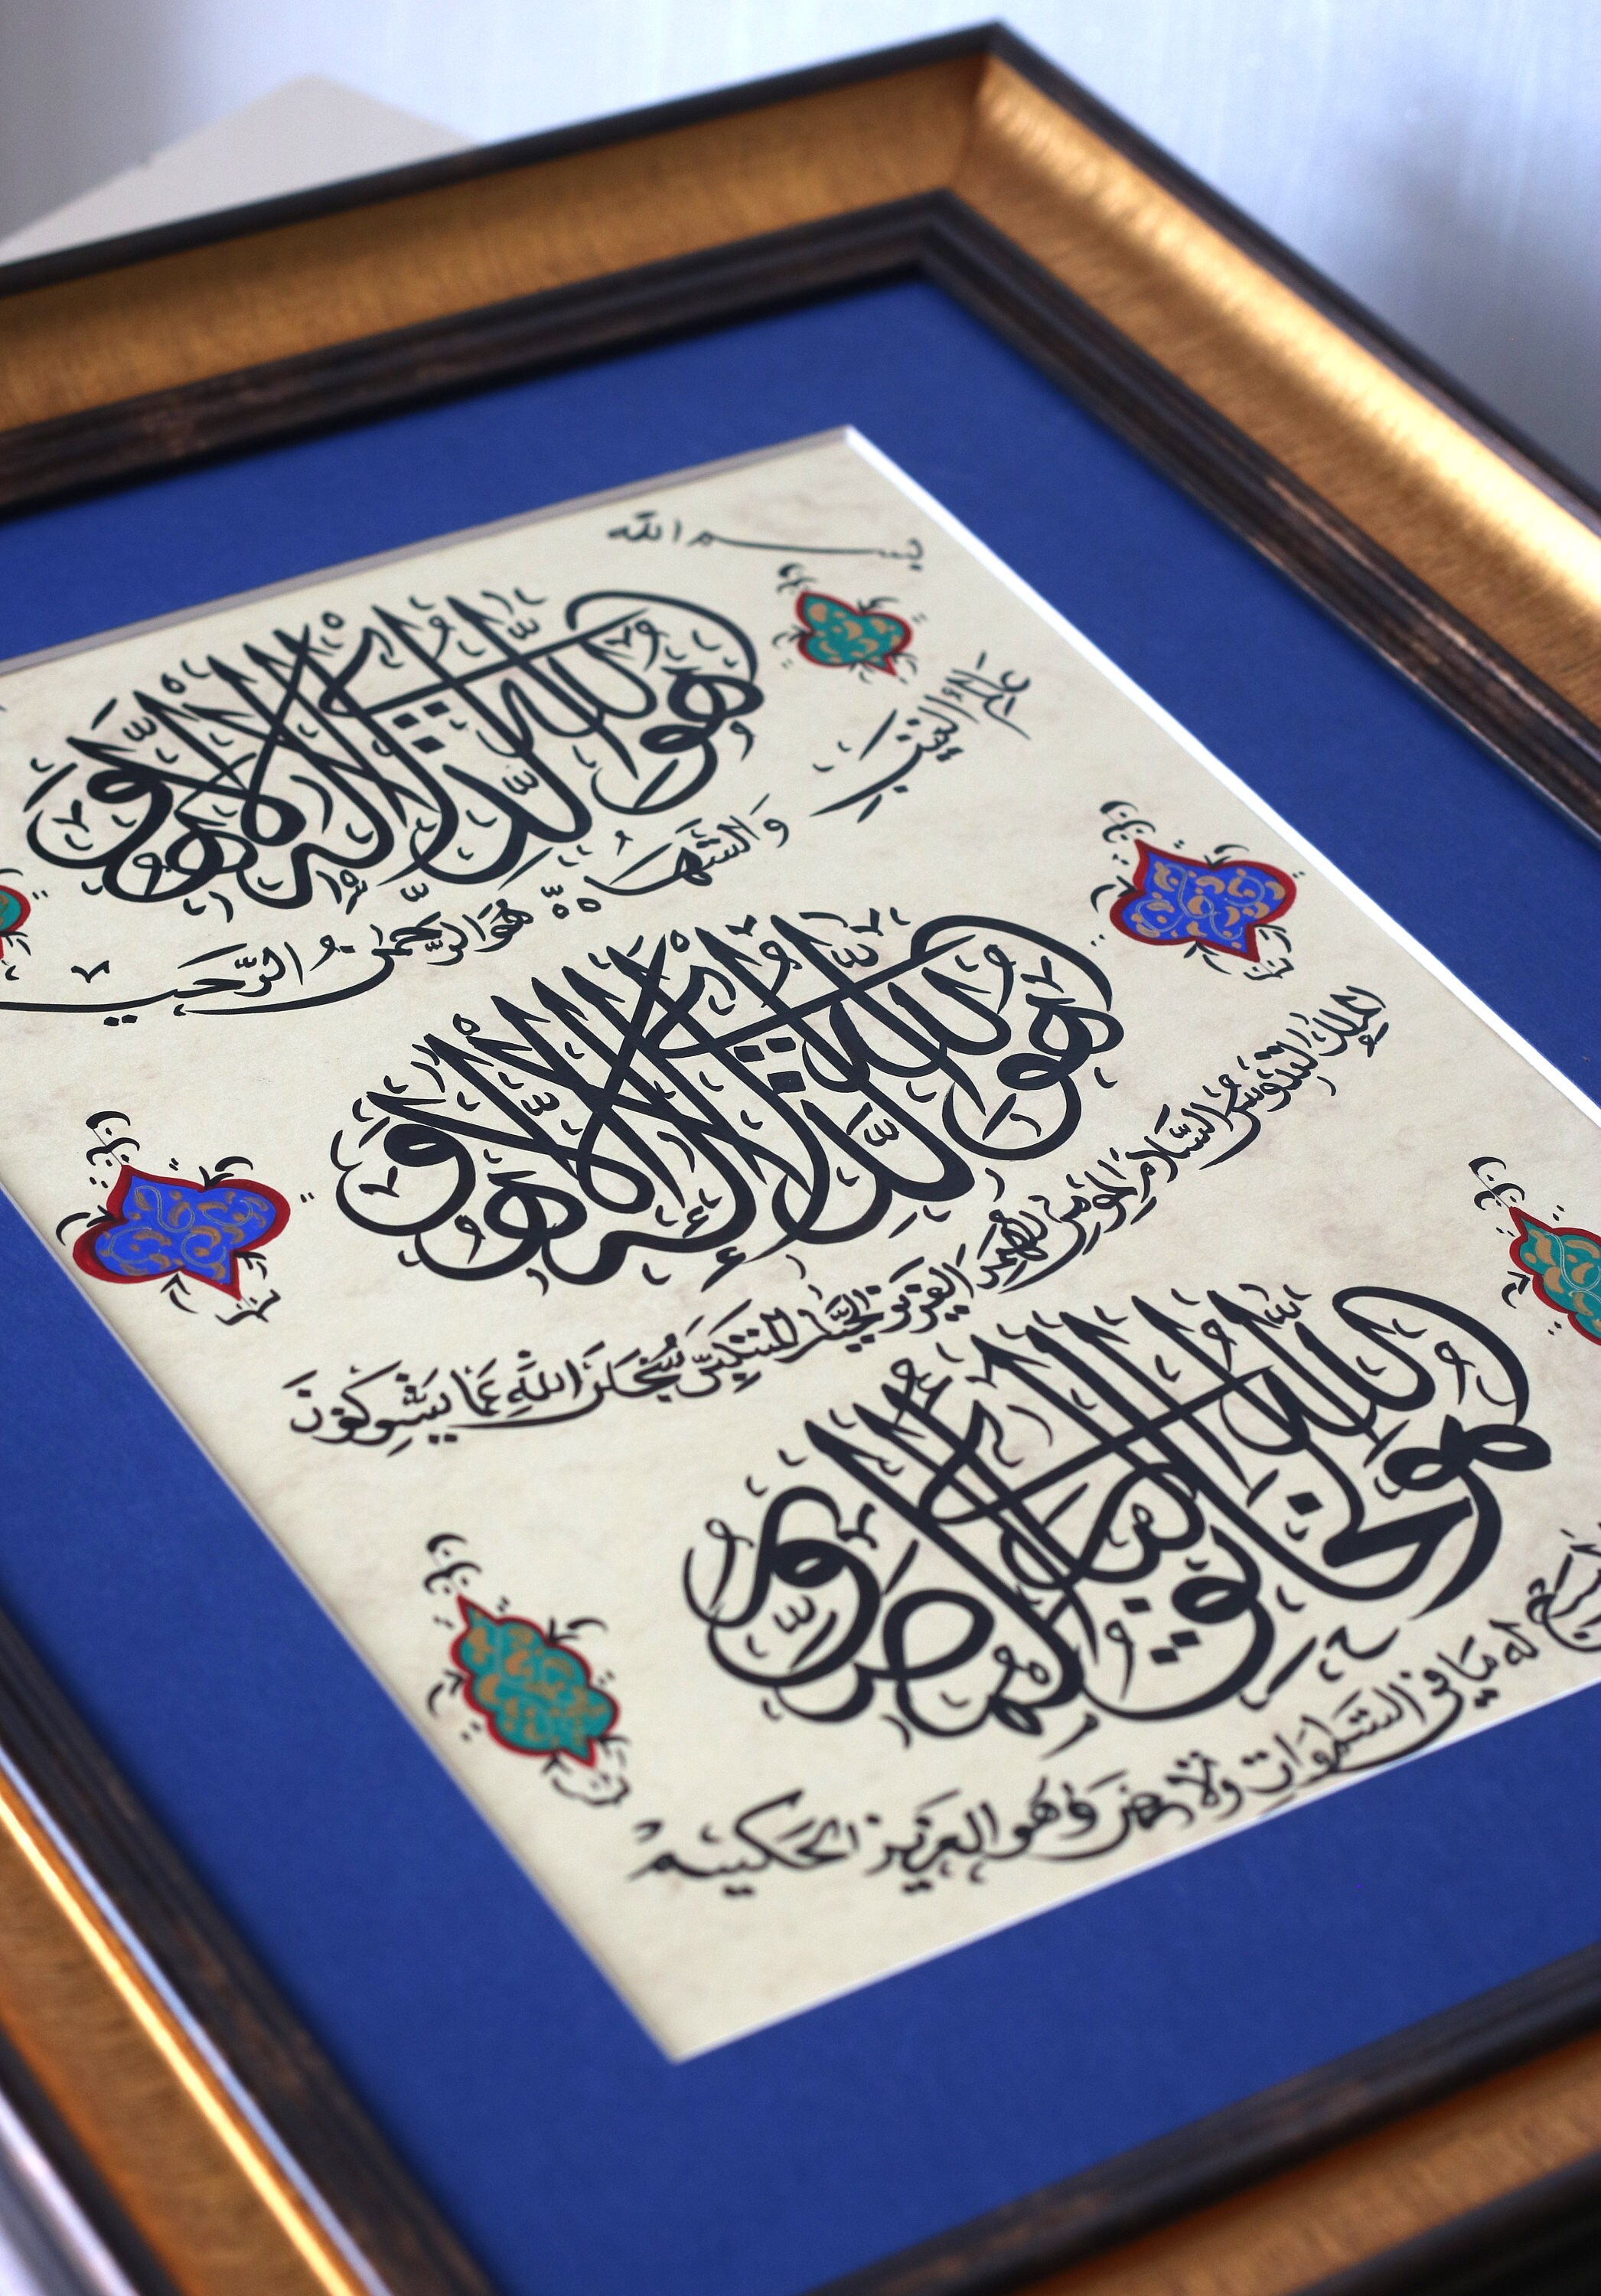 بسم الله
هو الله الذي لا إله إلا هو
عالم الغيب
والشهادة هو الرحمن الرحيم
هو الله الذي لا إله إلا هو
الملك القدوس السلام المؤمن المهيمن العزيز الجبار المتكبر سبحان الله عما يشركون
هو الله الخالق البارئ المصور
له ما في السموات والارض وهو العزيز الحكيم